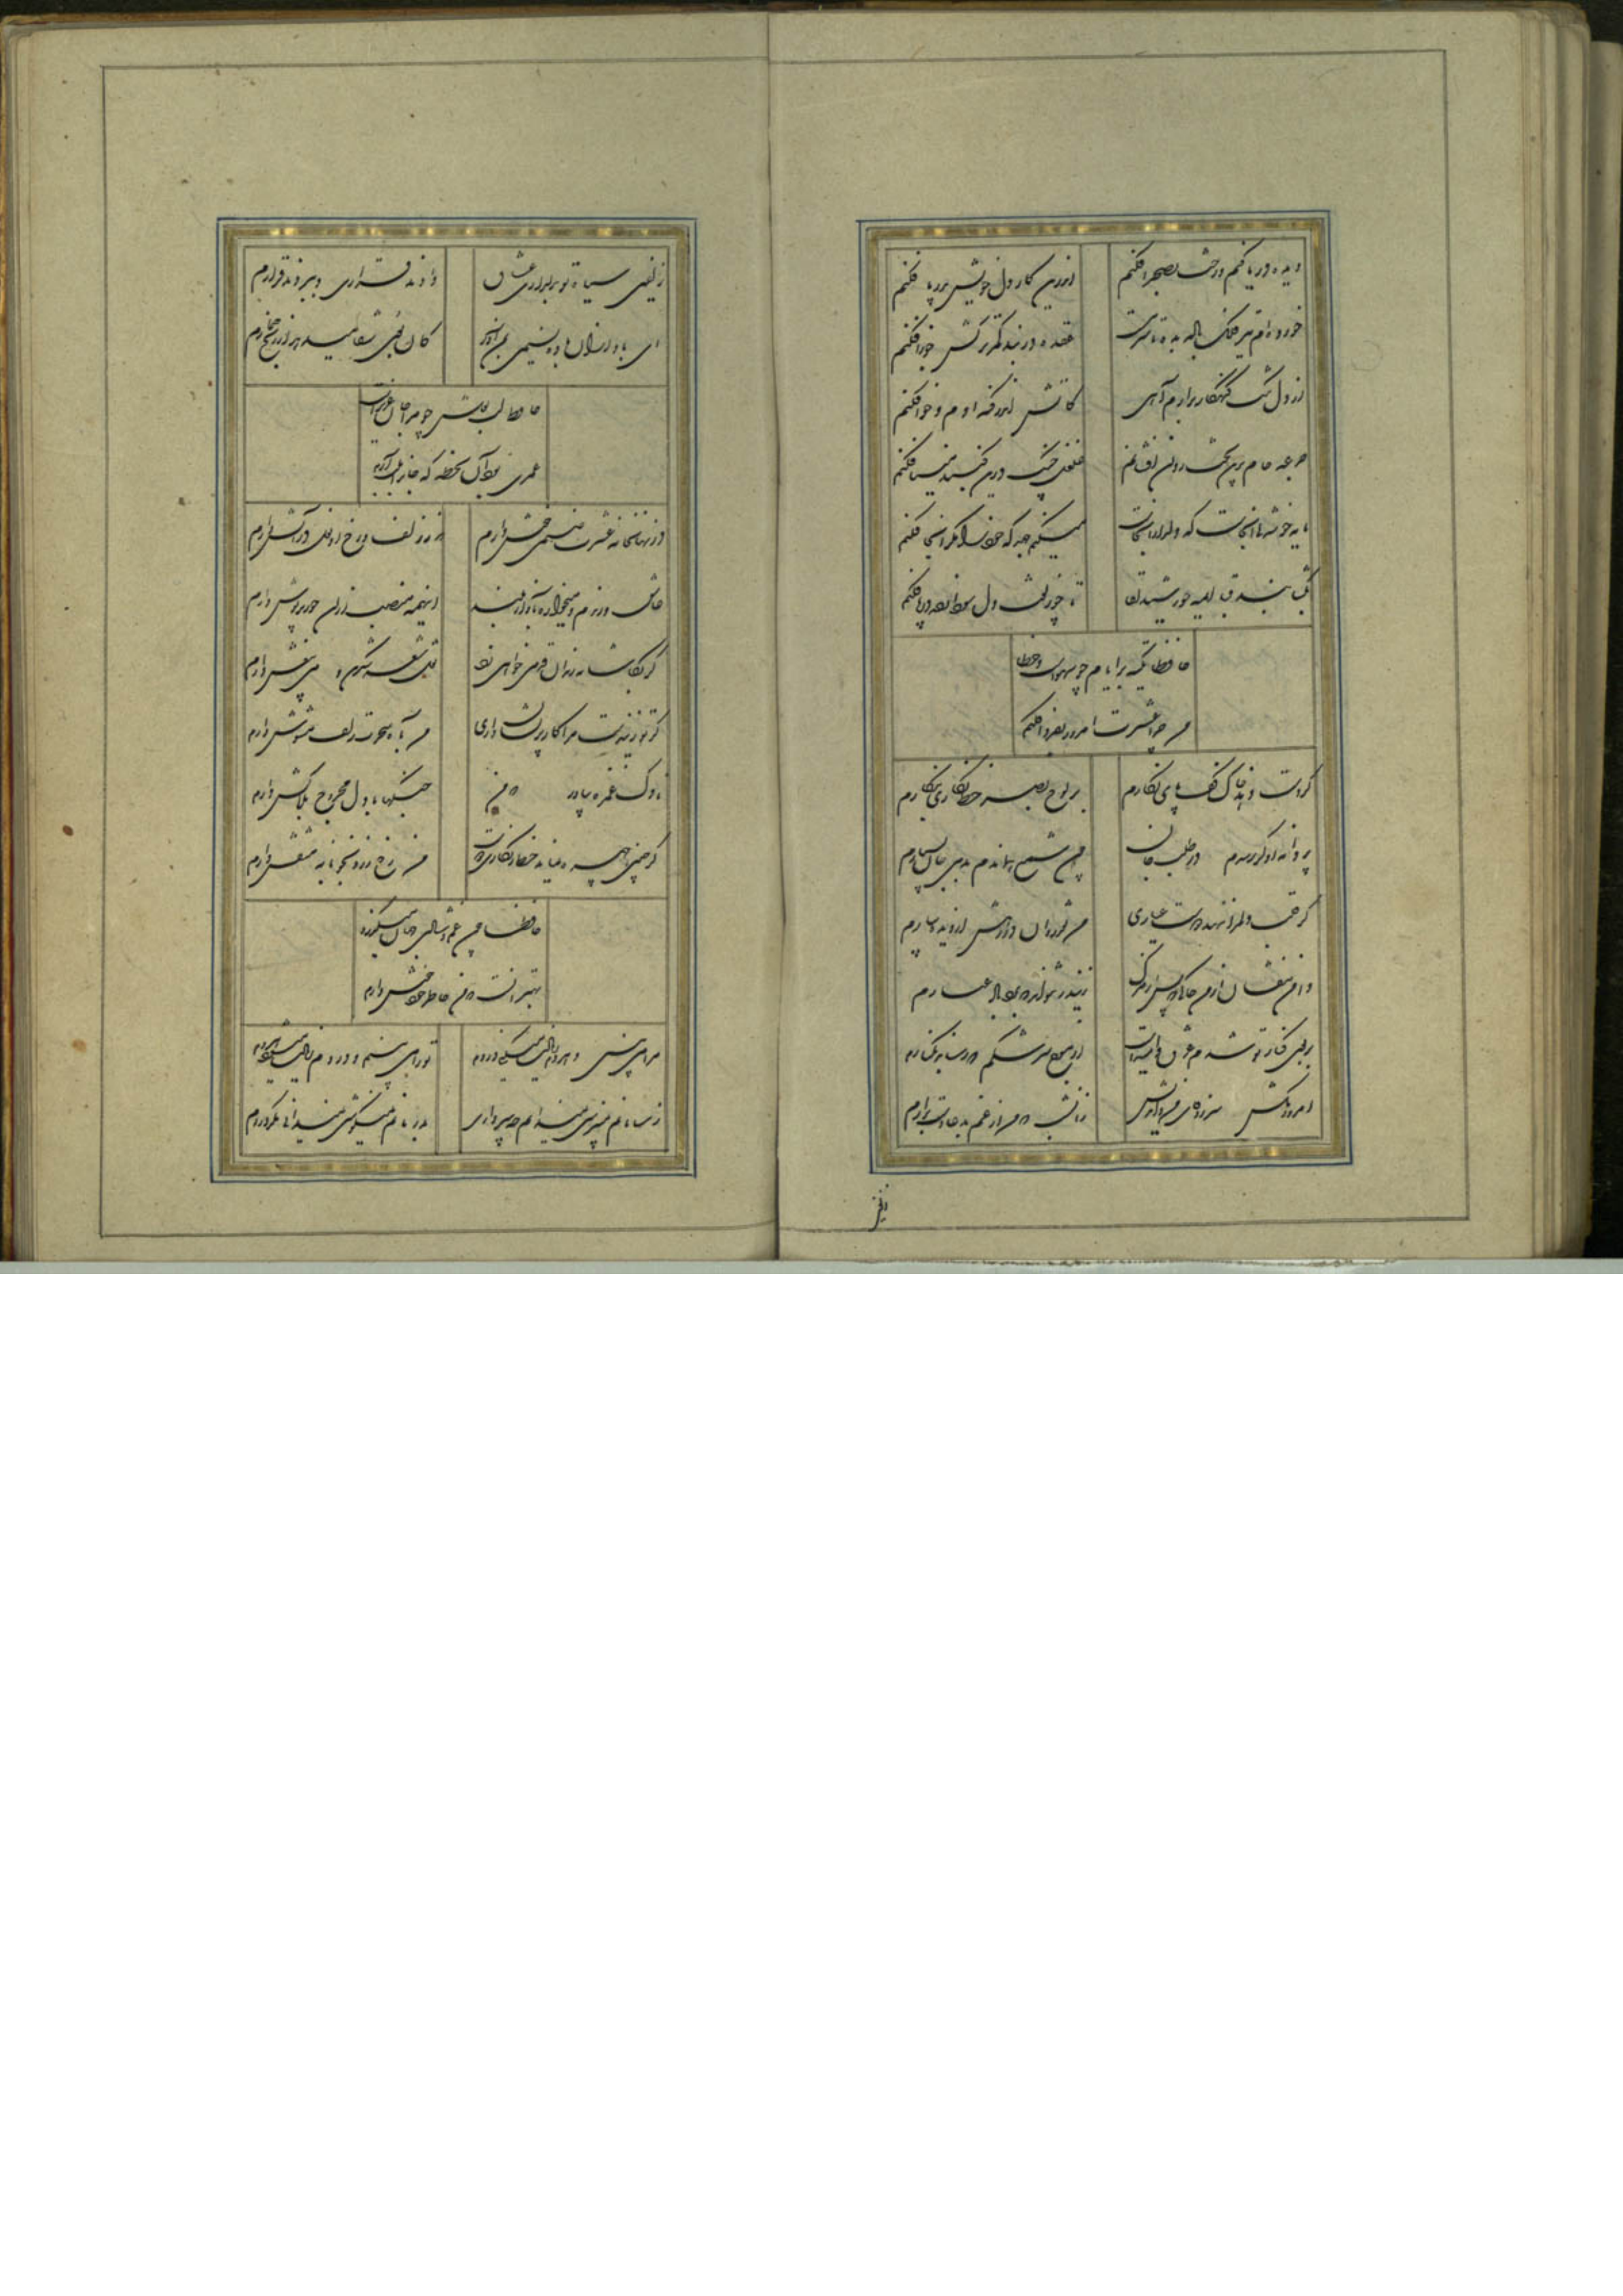 دیده دریا کنم و رخت بصحرا فکنم
اندرین کار دل خویش بدریا فکنم
خورده‌ام تیر فلک باده بده تا سرمست
عقده در بند کمر ترکش جوزا فکنم
از دل تنگ گنهکار برآرم آهی
کاتش اندر گنه آدم و حوا فکنم
جرعه جام برین تخت روان افشانم
غلغل چنگ درین گنبد مینا فکنم
مایه خوشدلی آنجاست که دلدار آنجاست
میکنم جهد که خود را مگر آنجا فکنم
بگشا بند قبا ای مه خورشید لقا
تا چو زلفت دل سودازده در پا فکنم
حافظا تکیه بر ایام چو سهوست و خطا
من چرا عشرت امروز بفردا فکنم
گر دست دهد خاک کف پای نگارم
بر لوح بصر خط بنگارم
پروانه او گر رسدم در طلب جان
چون شمع هماندم بدمی جان بسپارم
گر قلب دلم را ننهد دوست عیاری
من نقد روان در دمش از دیده شمارم
دامن مفشان از من خاکی که پس از مرگ
زین در نتواند که برد باد غبارم
بر بوی کنار تو شدم غرق و امیدست
از موج سرشکم که رساند بکنارم
امروز مکش سر ز وفای من و اندیش
زان شب که من از غم بدعا دست برآرم
زلفین
زلفین سیاه تو بدلداری عشاق
دادند قراری و ببردند قرارم
ای باد از آن باده نسیمی بمن آور
کان بوی شفا میدهد از رنج خمارم
حافظ لب لعلش چو مرا جان عزیزست
عمری بود آن لحظه که جان را بلب آرم
در نهانخانه عشرت صنمی خوش دارم
کز سر زلف و رخش نعل در آتش دارم
عاشق و رندم و میخواره بآواز بلند
وینهمه منصب از آن حور پریوش دارم
گر بکاشانه رندان قدمی خواهی زد
نقل شعر شکرین و می بیغش دارم
گر تو زین دست مرا بی سر و سامان داری
من بآه سحرت زلف مشوش دارم
ناوک غمزه بیار که من
جنگها با دل مجروح بلاکش دارم
گر چنین چهره گشاید خط زنگاری دوست
من رخ زرد بخونابه منقش دارم
حافظا چون غم و شادی جهان میگذرد
بهتر آنست که من خاطر خود خوش دارم
مرا می بینی و هردم زیادت میکنی دردم
ترا می بینم و دردم زیادت میشود هردم
ز سامانم نمیپرسی نمیدانم چه سر داری
بدرمانم نمیکوشی نمیدانی مگر دردم